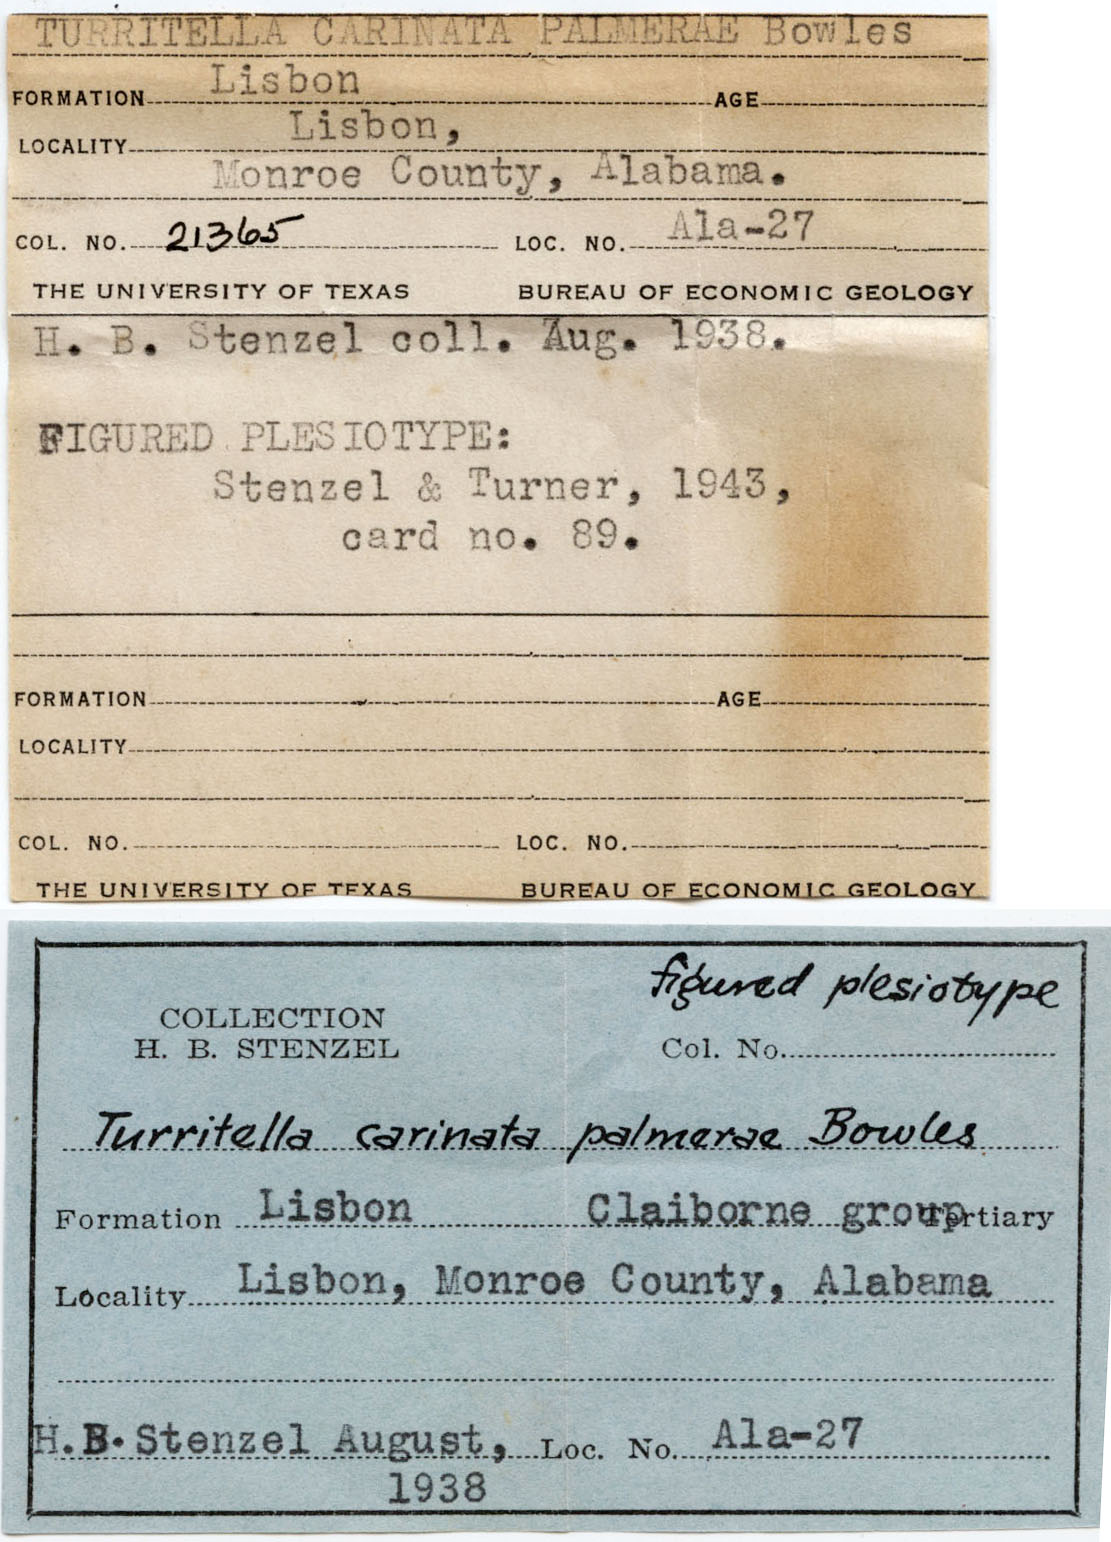 TURRITELLA CARINATA PALMERAE Bowles
FORMATION Lisbon AGE
LOCALITY Lisbon,
Monroe County, Alabama.
COL. NO. 21365 LOC. NO. Ala-27
THE UNIVERSITY OF TEXAS BUREAU OF ECONOMIC GEOLOGY
H. B. Stenzel coll. Aug. 1938.
FIGURED PLESIOTYPE:
Stenzel & Turner, 1943,
card no. 89.
FORMATION AGE
LOCALITY
COL. NO. LOC. NO.
THE UNIVERSITY OF TEXAS BUREAU OF ECONOMIC GEOLOGY
figured plesiotype
COLLECTION
H. B. STENZEL Col. No.
Turritella carinata palmerae Bowles
Formation Lisbon Claiborne group Tertiary
Locality Lisbon, Monroe County, Alabama
H.B. Stenzel August, Loc. No. Ala-27
1938